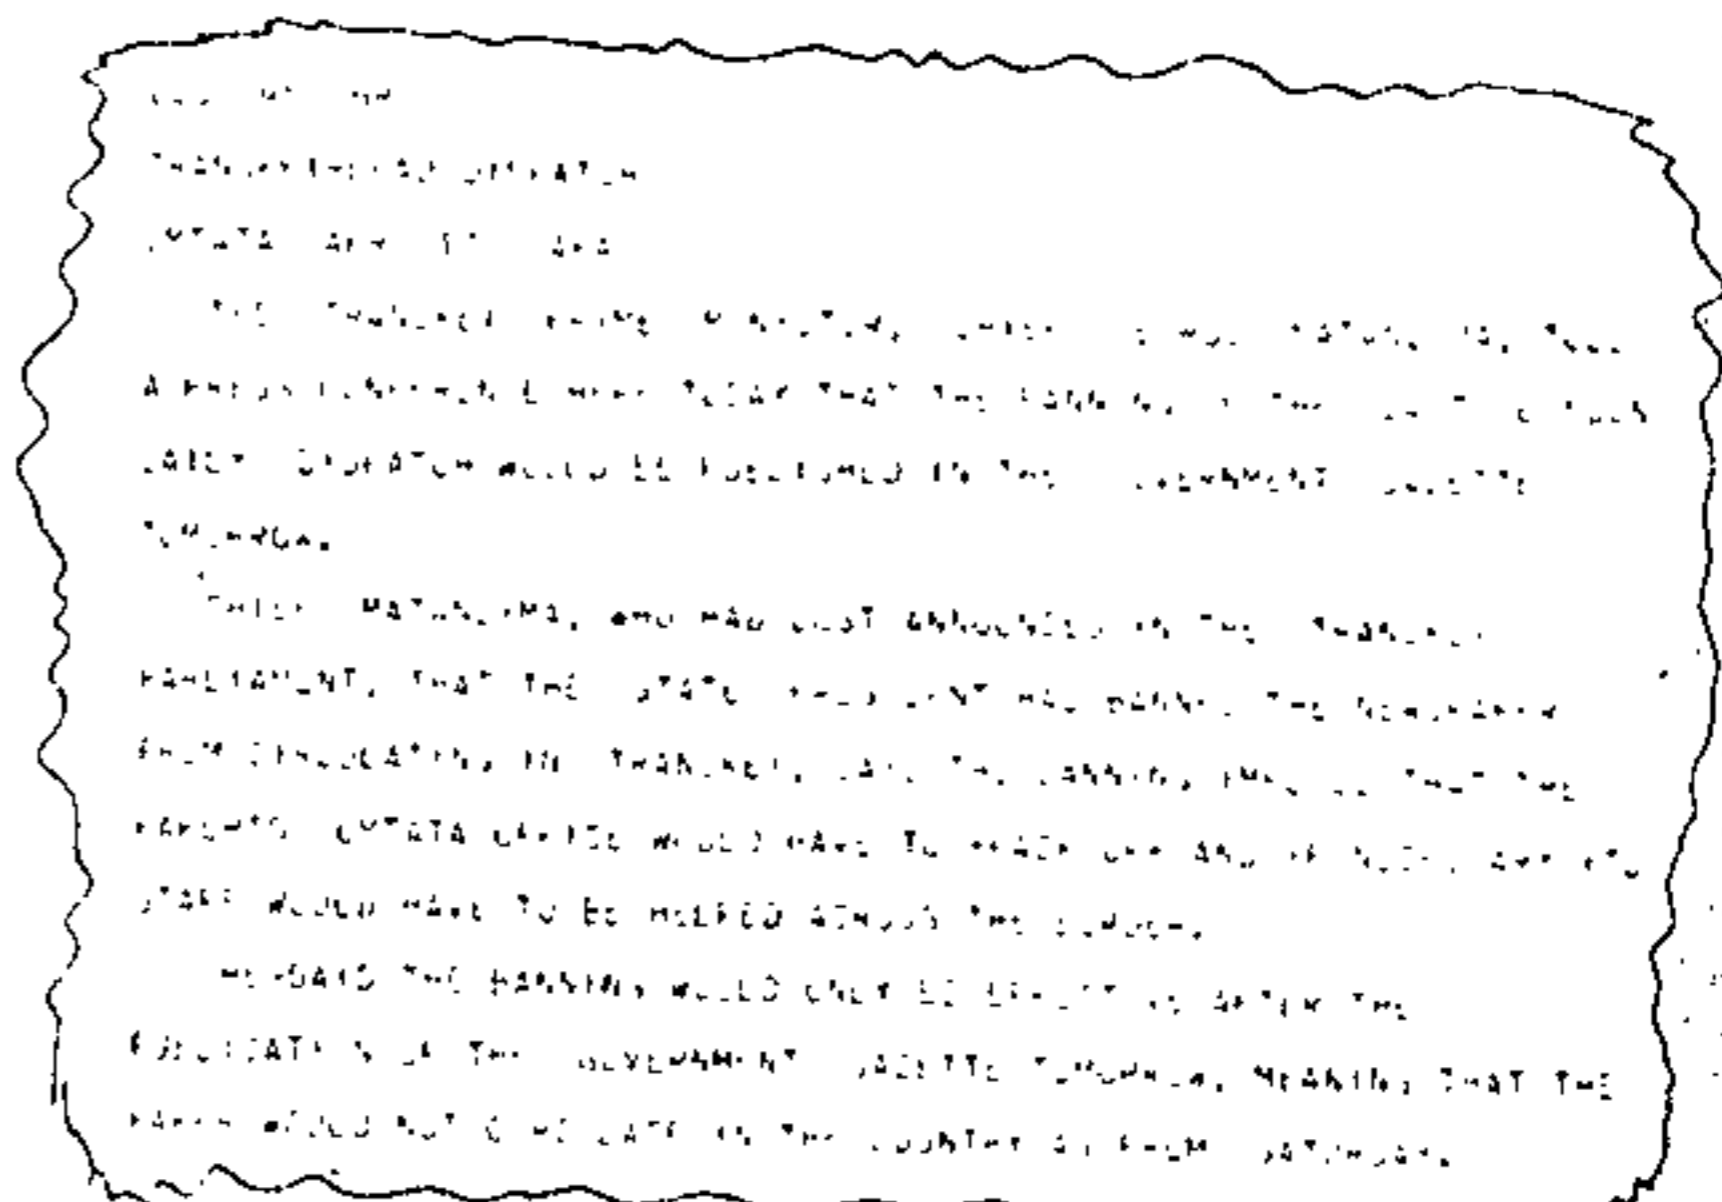 TRANSKEI DISPATCH
UMTATA
THE TRANSKEI PRIME MINISTER, CHIEF TOLD
A PRESS CONFERENCE HERE TODAY THAT THE BANNING OF THE
DAILY DISPATCH WOULD BE PUBLISHED IN THE GOVERNMENT GAZETTE
TOMORROW.
CHIEF MATANZIMA, WHO HAD JUST ANNOUNCED IN THE TRANSKEI
PARLIAMENT, THAT THE STATE PRESIDENT HAD BANNED THE NEWSPAPER
FROM CIRCULATING IN TRANSKEI, SAID THE BANNING IMPLIED THAT THE
PAPER'S UMTATA OFFICE WOULD HAVE TO AND ITS
STAFF WOULD HAVE TO BE HELPED ACROSS THE BORDER.
HE SAID THE BANNING WOULD ONLY BE EFFECTIVE AFTER THE
PUBLICATION OF THE GOVERNMENT GAZETTE TOMORROW, MEANING THAT THE
PAPER WOULD NOT CIRCULATE IN THE COUNTRY AS FROM SATURDAY.